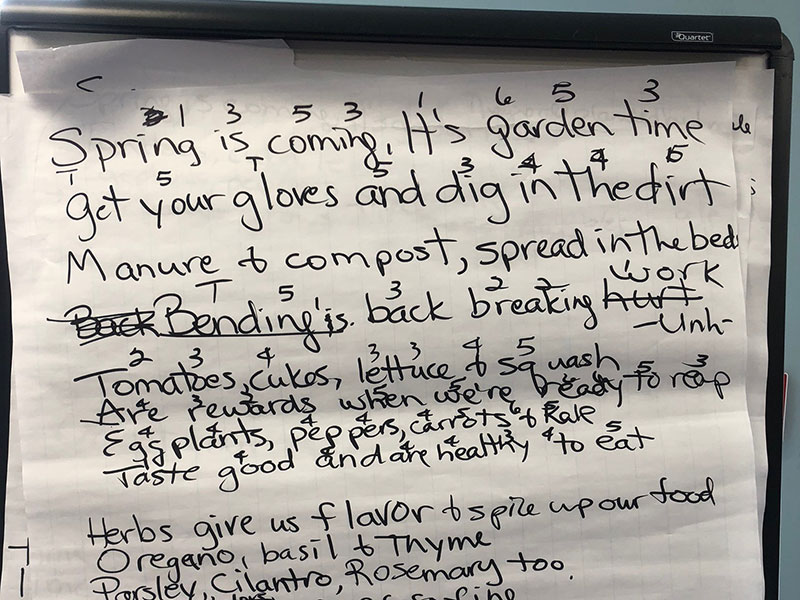 Quartet
1 3 5 3 1 6 5 3
Spring is coming, It's garden time
T 5 T 5 3 4 4 5
get your gloves and dig in the dirt
Manure & compost, spread in the beds
work
T 5 1 3 2 2
Back Bending is back breaking hurt
-Unh-
2 3 4 3 3 4 5
Tomatoes, cukes, lettuce & squash
Are rewards when we're ready to reap
Eggplants, peppers, carrots & Kale
Taste good and are healthy to eat
Herbs give us flavor & spice up our food
Oregano, basil & Thyme
Parsley, Cilantro, Rosemary too.